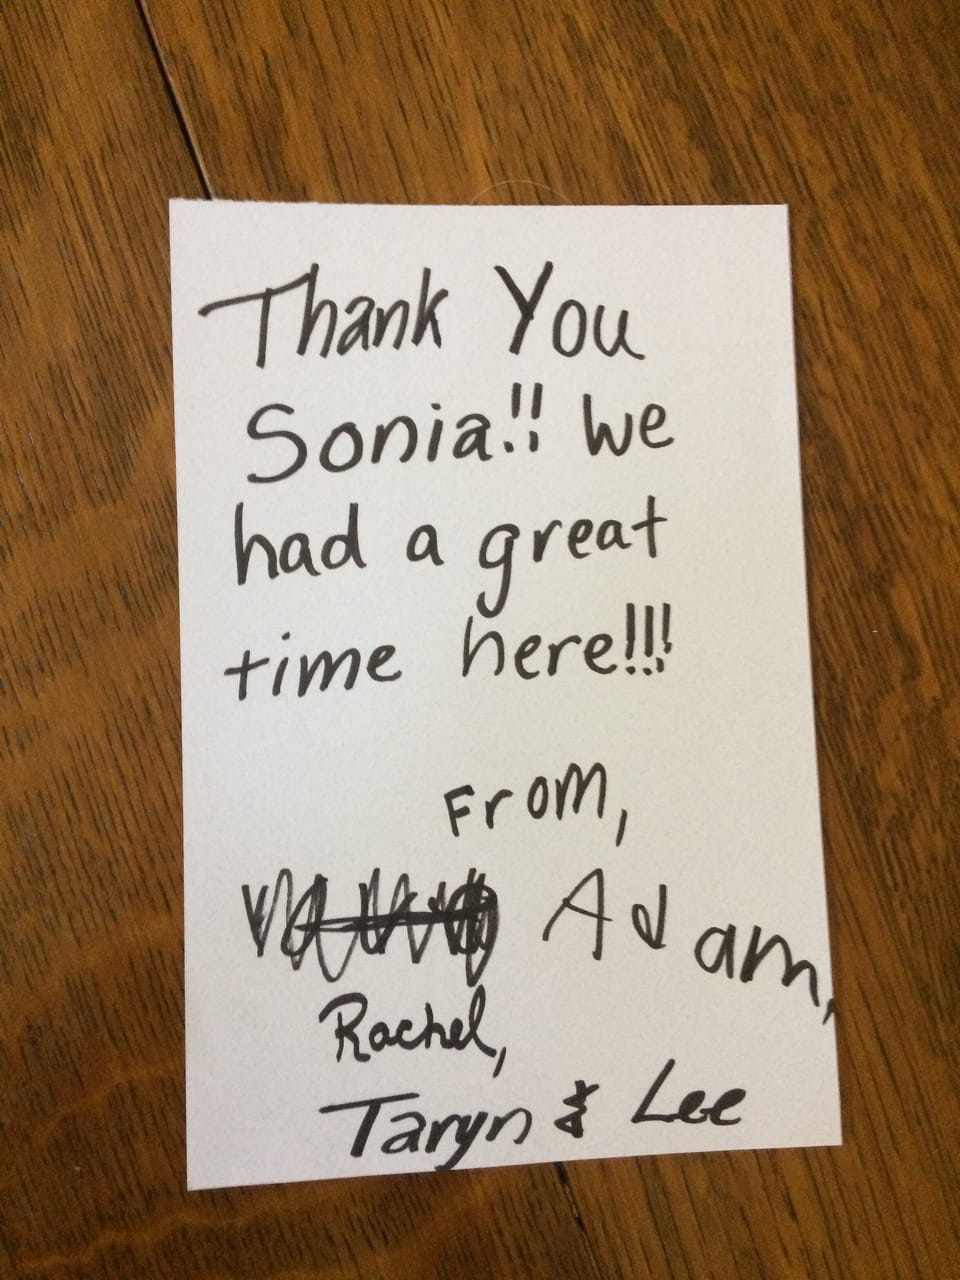 Thank You
Sonia!! We
had a great
time here!!!
From,
Adam,
Rachel,
Taryn & Lee